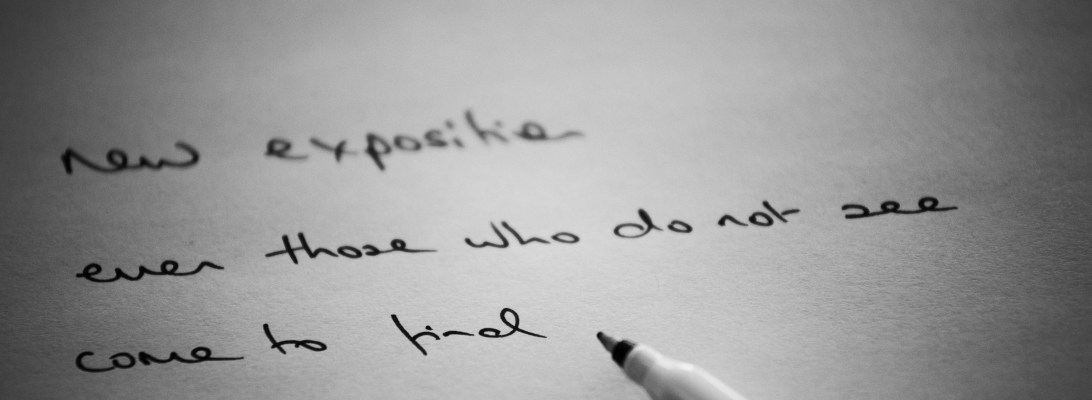 New exposition
even those who do not see
come to find